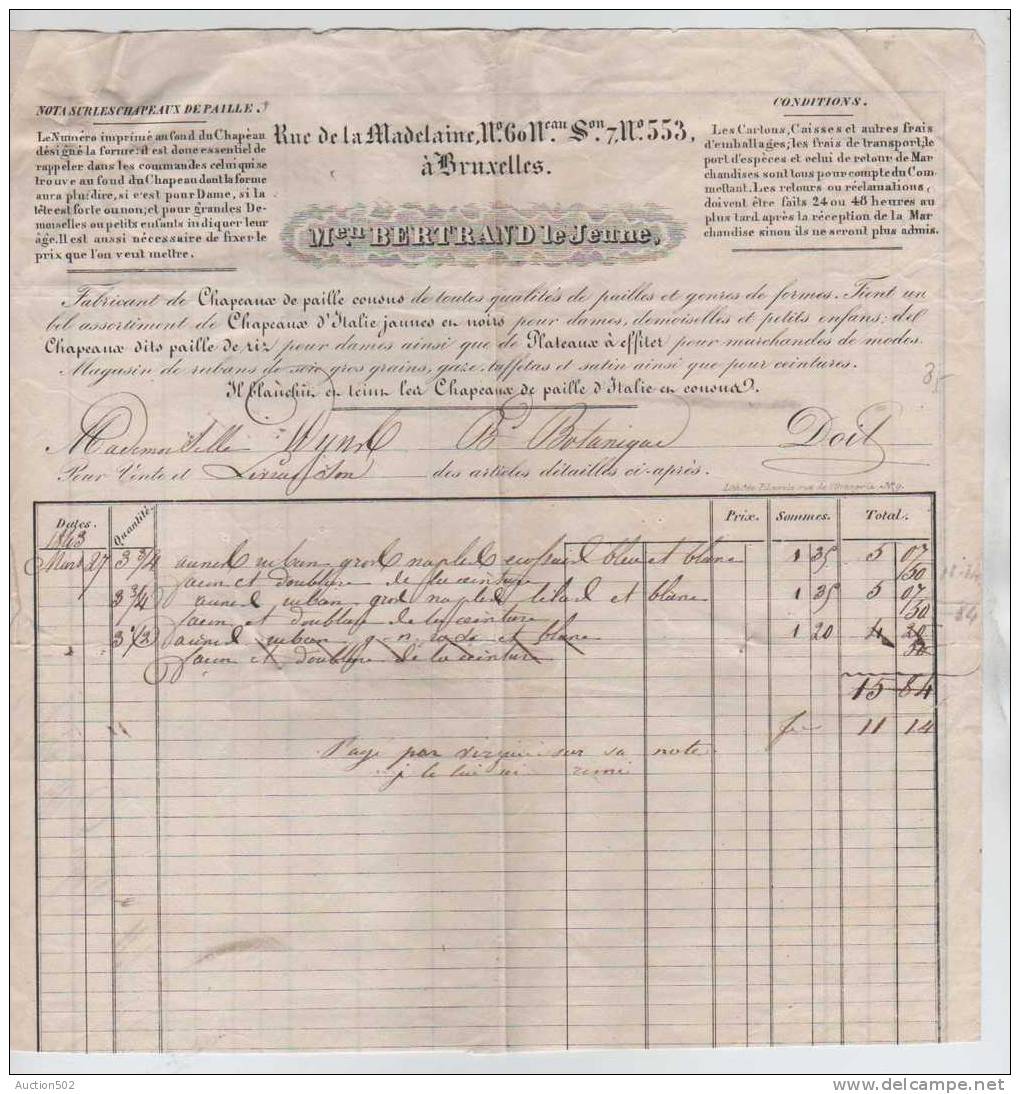 NOTA SUR LES CHAPEAUX DE PAILLE.
Le Numéro imprimé au fond du Chapeau
désigne la forme: il est donc essentiel de
rappeler dans les commandes celui qui se
trouve au fond du Chapeau dont la forme
aura plu: dire, si c'est pour Dame, si la
tête est forte ou non; et pour grandes De-
moiselles ou petits enfants indiquer leur
âge. Il est aussi nécessaire de fixer le
prix que l'on veut mettre.
Rue de la Madelaine, No. 60 Neau Son. 7, No 553,
à Bruxelles.
CONDITIONS.
Les Cartons, Caisses et autres frais
d'emballages; les frais de transport; le
port d'espèces et celui de retour de Mar
chandises sont tous pour compte du Com
mettant. Les retours ou réclamations
doivent être faits 24 ou 48 heures au
plus tard après la réception de la Mar
chandise sinon ils ne seront plus admis.
Men BERTRAND le Jeune,
Fabricant de Chapeaux de paille cousus de toutes qualités de pailles et genres de formes. Tient un
bel assortiment de Chapeaux d'Italie jaunes en noirs pour dames, demoiselles et petits enfans; del
Chapeaux dits paille de riz pour dames ainsi que de Plateaux à effiler pour marchandes de modes.
Magasin de rubans de soie gros grains, gaze, taffetas et satin ainsi que pour ceintures.
Il blanchit en teint les Chapeaux de paille d'Italie en cousus.
3,-
Mademoiselle Botanique Doit
Pour Vente et Livraison des articles détaillés ci-après.
rue de l'Orangerie No 9.
Dates. Quantité. Prix. Sommes. Total.
1843
Mars 27 3 3/4 aunes ruban gros naples ecossais bleu et blanc 1 35 5 07
facon et doublure de la ceinture /50
3 3/4 aunes ruban gros naples lilas et blanc 1 35 5 07
facon et doublure de la ceinture /50
3 1/2 aunes ruban g. n. rose et blanc 1 20 4 20
facon et doublure de la ceinture 50
15 84
11 14
Payé par virginie sur sa note
je le lui ai remi
Auction502
www.delcampe.net